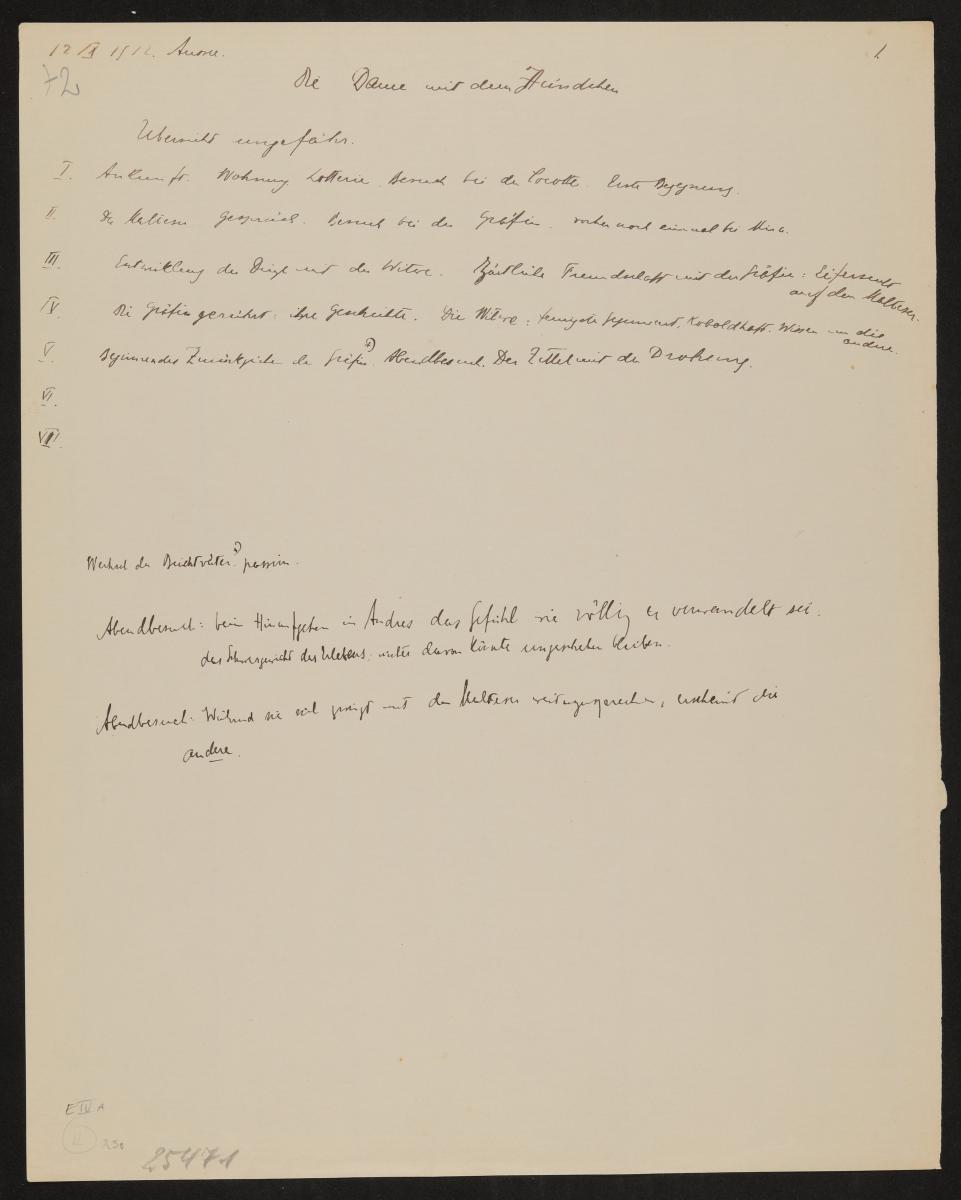 12 IX 1912. Aussee.
1.
72
Die Dame mit dem Hündchen
Übersicht ungefähr.
I. Ankunft. Wohnung Lotterie. Besuch bei der Cocotte. Erste Begegnung.
II. Der Malteser Gespräch. Besuch bei der Gräfin. vorher noch einmal bei Nina.
III. Entwicklung der Dinge mit der Witwe. Zärtliche Freundschaft mit der Gräfin: Eifersucht
auf den Malteser.
IV. Die Gräfin gerührt: ihre Geschichte. Die Witwe: Gegenwart. Koboldhaft. Wissen um die
andere.
V. Beginnendes Zurückgleiten der Gräfin. Abendbesuch. Der Zettel mit der Drohung.
VI.
VII.
Wechsel der Beichtväter? passim.
Abendbesuch: beim Hinaufgehen in Andres das Gefühl wie völlig er verwandelt sei.
das Schwergewicht des Erlebens: unter davon könnte ungeschehen bleiben.
Abendbesuch: Während sie sich zeigt mit dem Malteser, erscheint die
andere.
E IV A
11
230
25471